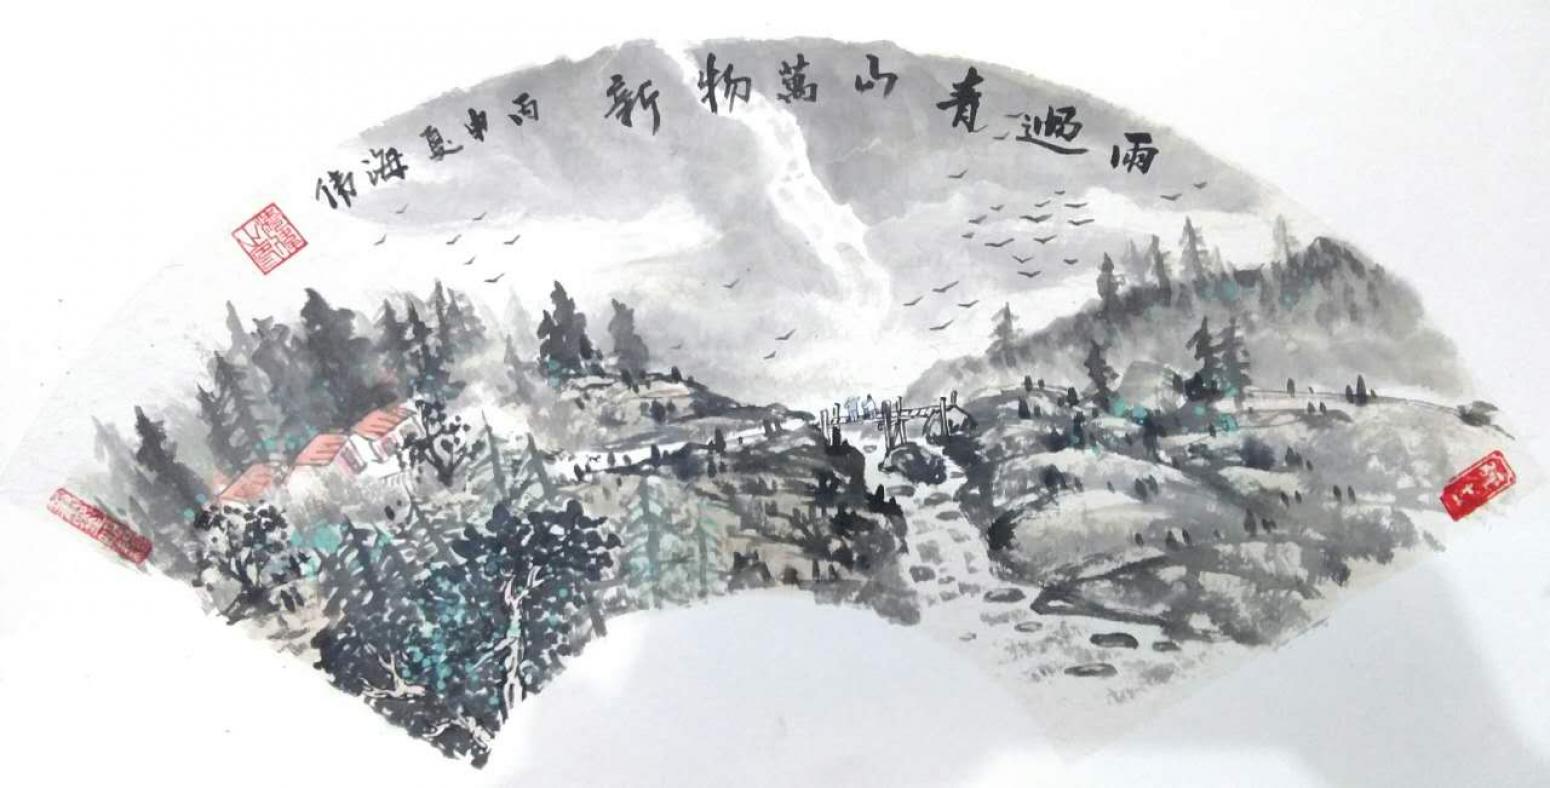 雨過青山萬物新 丙申夏海偉